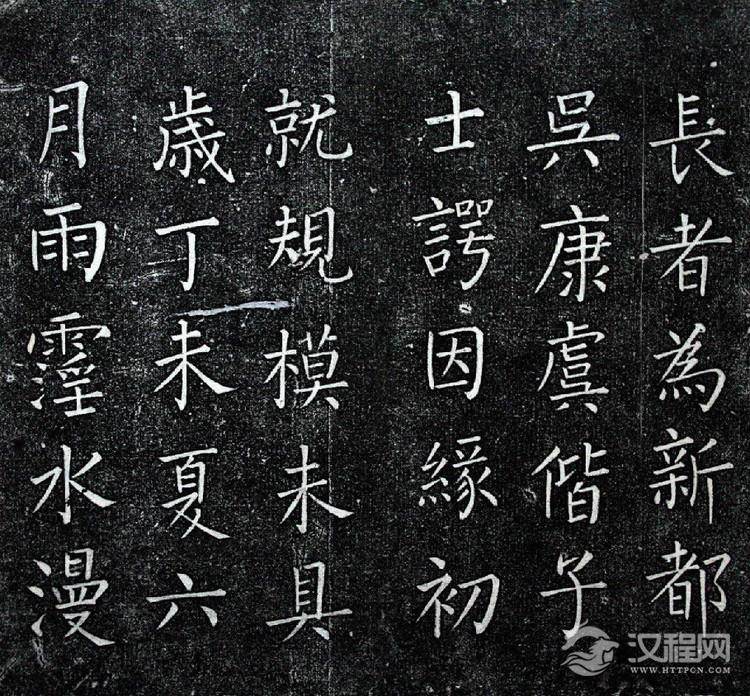 長者為新都
吳康虞偕子
士諤因緣初
就規模未具
歲丁未夏六
月雨霪水漫
汉程网
WWW.HTTPCN.COM